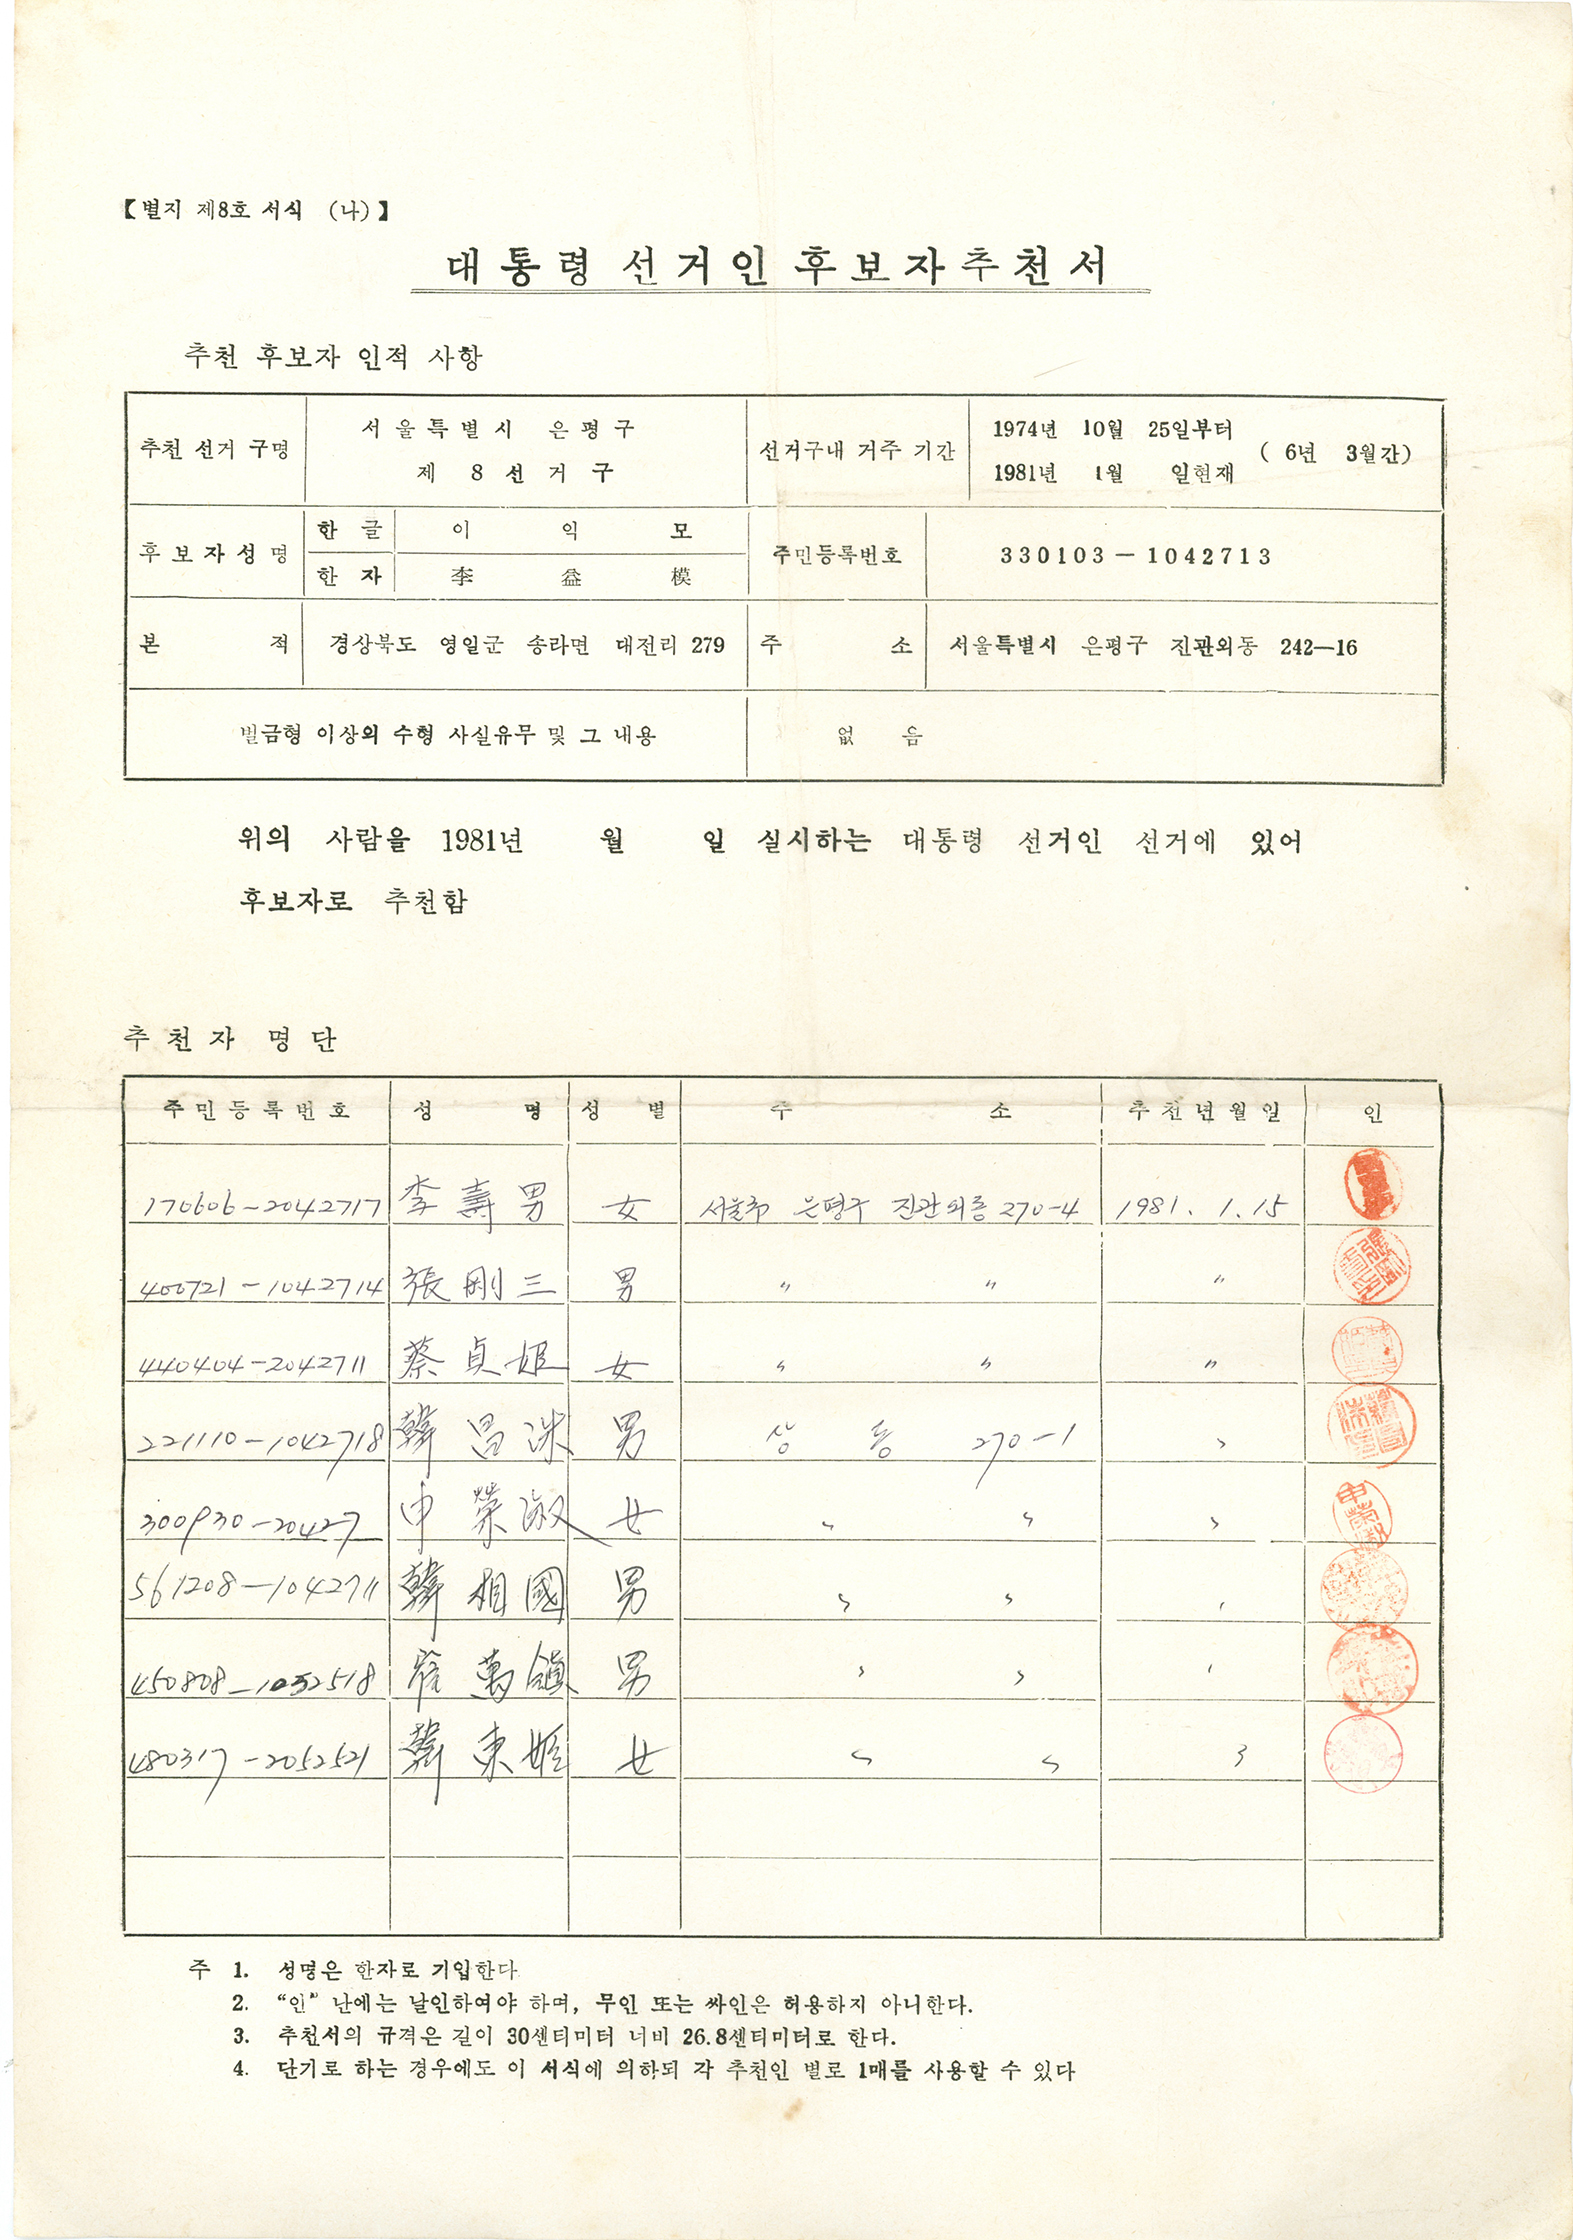 【별지 제8호 서식 (나)】
대통령 선거인 후보자추천서
추천 후보자 인적 사항
추천 선거 구명 서울특별시 은평구 제 8 선거구 선거구내 거주 기간 1974년 10월 25일부터 1981년 1월 일현재 ( 6년 3월간)
후보자성명 한글 이 익 모 주민등록번호 330103-1042713
한자 李 益 模
본 적 경상북도 영일군 송라면 대전리 279 주 소 서울특별시 은평구 진관외동 242-16
벌금형 이상의 수형 사실유무 및 그 내용 없 음
위의 사람을 1981년 월 일 실시하는 대통령 선거인 선거에 있어
후보자로 추천함
추천자 명단
주민등록번호 성 명 성 별 주 소 추천년월일 인
170606-2042717 李壽男 女 서울市 은평구 진관외동 270-4 1981. 1. 15
400721-1042714 張剛三 男 〃 〃 〃
440404-2042711 蔡貞姬 女 〃 〃 〃
221110-1042718 韓昌洙 男 상 동 270-1 〃
300930-20427 申榮淑 女 〃 〃 〃
561208-1042711 韓相國 男 〃 〃 〃
450808-1032518 萬鎭 男 〃 〃 〃
480317-2052521 韓東姬 女 〃 〃 〃
주 1. 성명은 한자로 기입한다
2. “인” 난에는 날인하여야 하며, 무인 또는 싸인은 허용하지 아니한다.
3. 추천서의 규격은 길이 30센티미터 너비 26.8센티미터로 한다.
4. 단기로 하는 경우에도 이 서식에 의하되 각 추천인 별로 1매를 사용할 수 있다